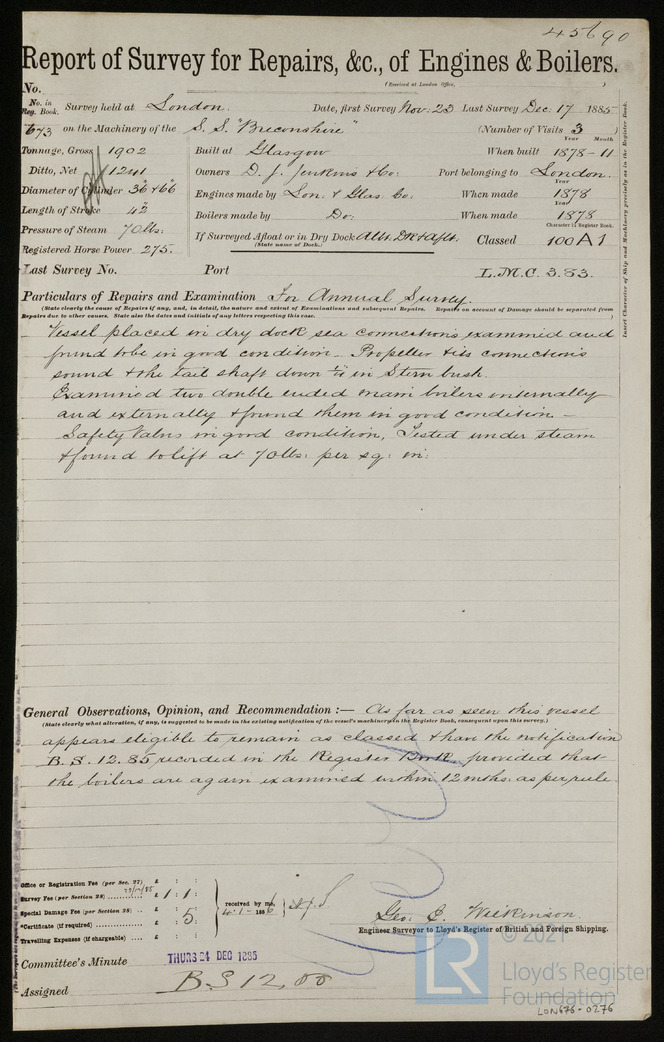 45690
Report of Survey for Repairs, &c., of Engines & Boilers.
(Received at London Office, )
No.
No. in Reg. Book. Survey held at London. Date, first Survey Nov: 23 Last Survey Dec: 17 1885
673 on the Machinery of the S. S. "Breconshire" (Number of Visits 3)
Tonnage, Gross 1902 Built at Glasgow When built 1878-11
Year Month
Ditto, Net 1241 Owners D. J. Jenkins & Co: Port belonging to London.
Diameter of Cylinder 36" & 66" Engines made by Lon. & Glas. Co. When made 1878
Year
Length of Stroke 42" Boilers made by Do: When made 1878
Year
Pressure of Steam 70 lbs: If Surveyed Afloat or in Dry Dock Albt. Dk & Aflt. Classed 100 A 1
(State name of Dock.) Character in Register Book.
Registered Horse Power 275.
Last Survey No. Port L.M.C. 3.83.
Particulars of Repairs and Examination For Annual Survey.
(State clearly the cause of Repairs if any, and, in detail, the nature and extent of Examinations and subsequent Repairs. Repairs on account of Damage should be separated from
Repairs due to other causes. State also the dates and initials of any letters respecting this case. )
Vessel placed in dry dock sea connections examined and
found to be in good condition - Propeller & its connections
sound & the tail shaft down in Stern bush.
Examined two double ended main boilers internally
and externally & found them in good condition -
Safety Valves in good condition, Tested under steam
& found to lift at 70 lbs: per sq: in:
General Observations, Opinion, and Recommendation :— As far as seen this vessel
(State clearly what alteration, if any, is suggested to be made in the existing notification of the vessel's machinery in the Register Book, consequent upon this survey.)
appears eligible to remain as classed & have the notification
B. S. 12. 85 recorded in the Register Book provided that
the boilers are again examined within 12 mths: as per rule
Office or Registration Fee (per Sec. 27) £ : :
Survey Fee (per Section 28) £ 1 : 1 :
Special Damage Fee (per Section 28) £ : :
*Certificate (if required) £ : 5 :
Travelling Expenses (if chargeable) £ : :
received by me,
4-1-1886
Geo. C. Wilkinson.
Engineer Surveyor to Lloyd's Register of British and Foreign Shipping.
Committee's Minute THURS 24 DEC 1885
Assigned B.S 12.85
Insert Character of Ship and Machinery precisely as in the Register Book.
© 2021
LR
Lloyd's Register
Foundation
LON676-0276